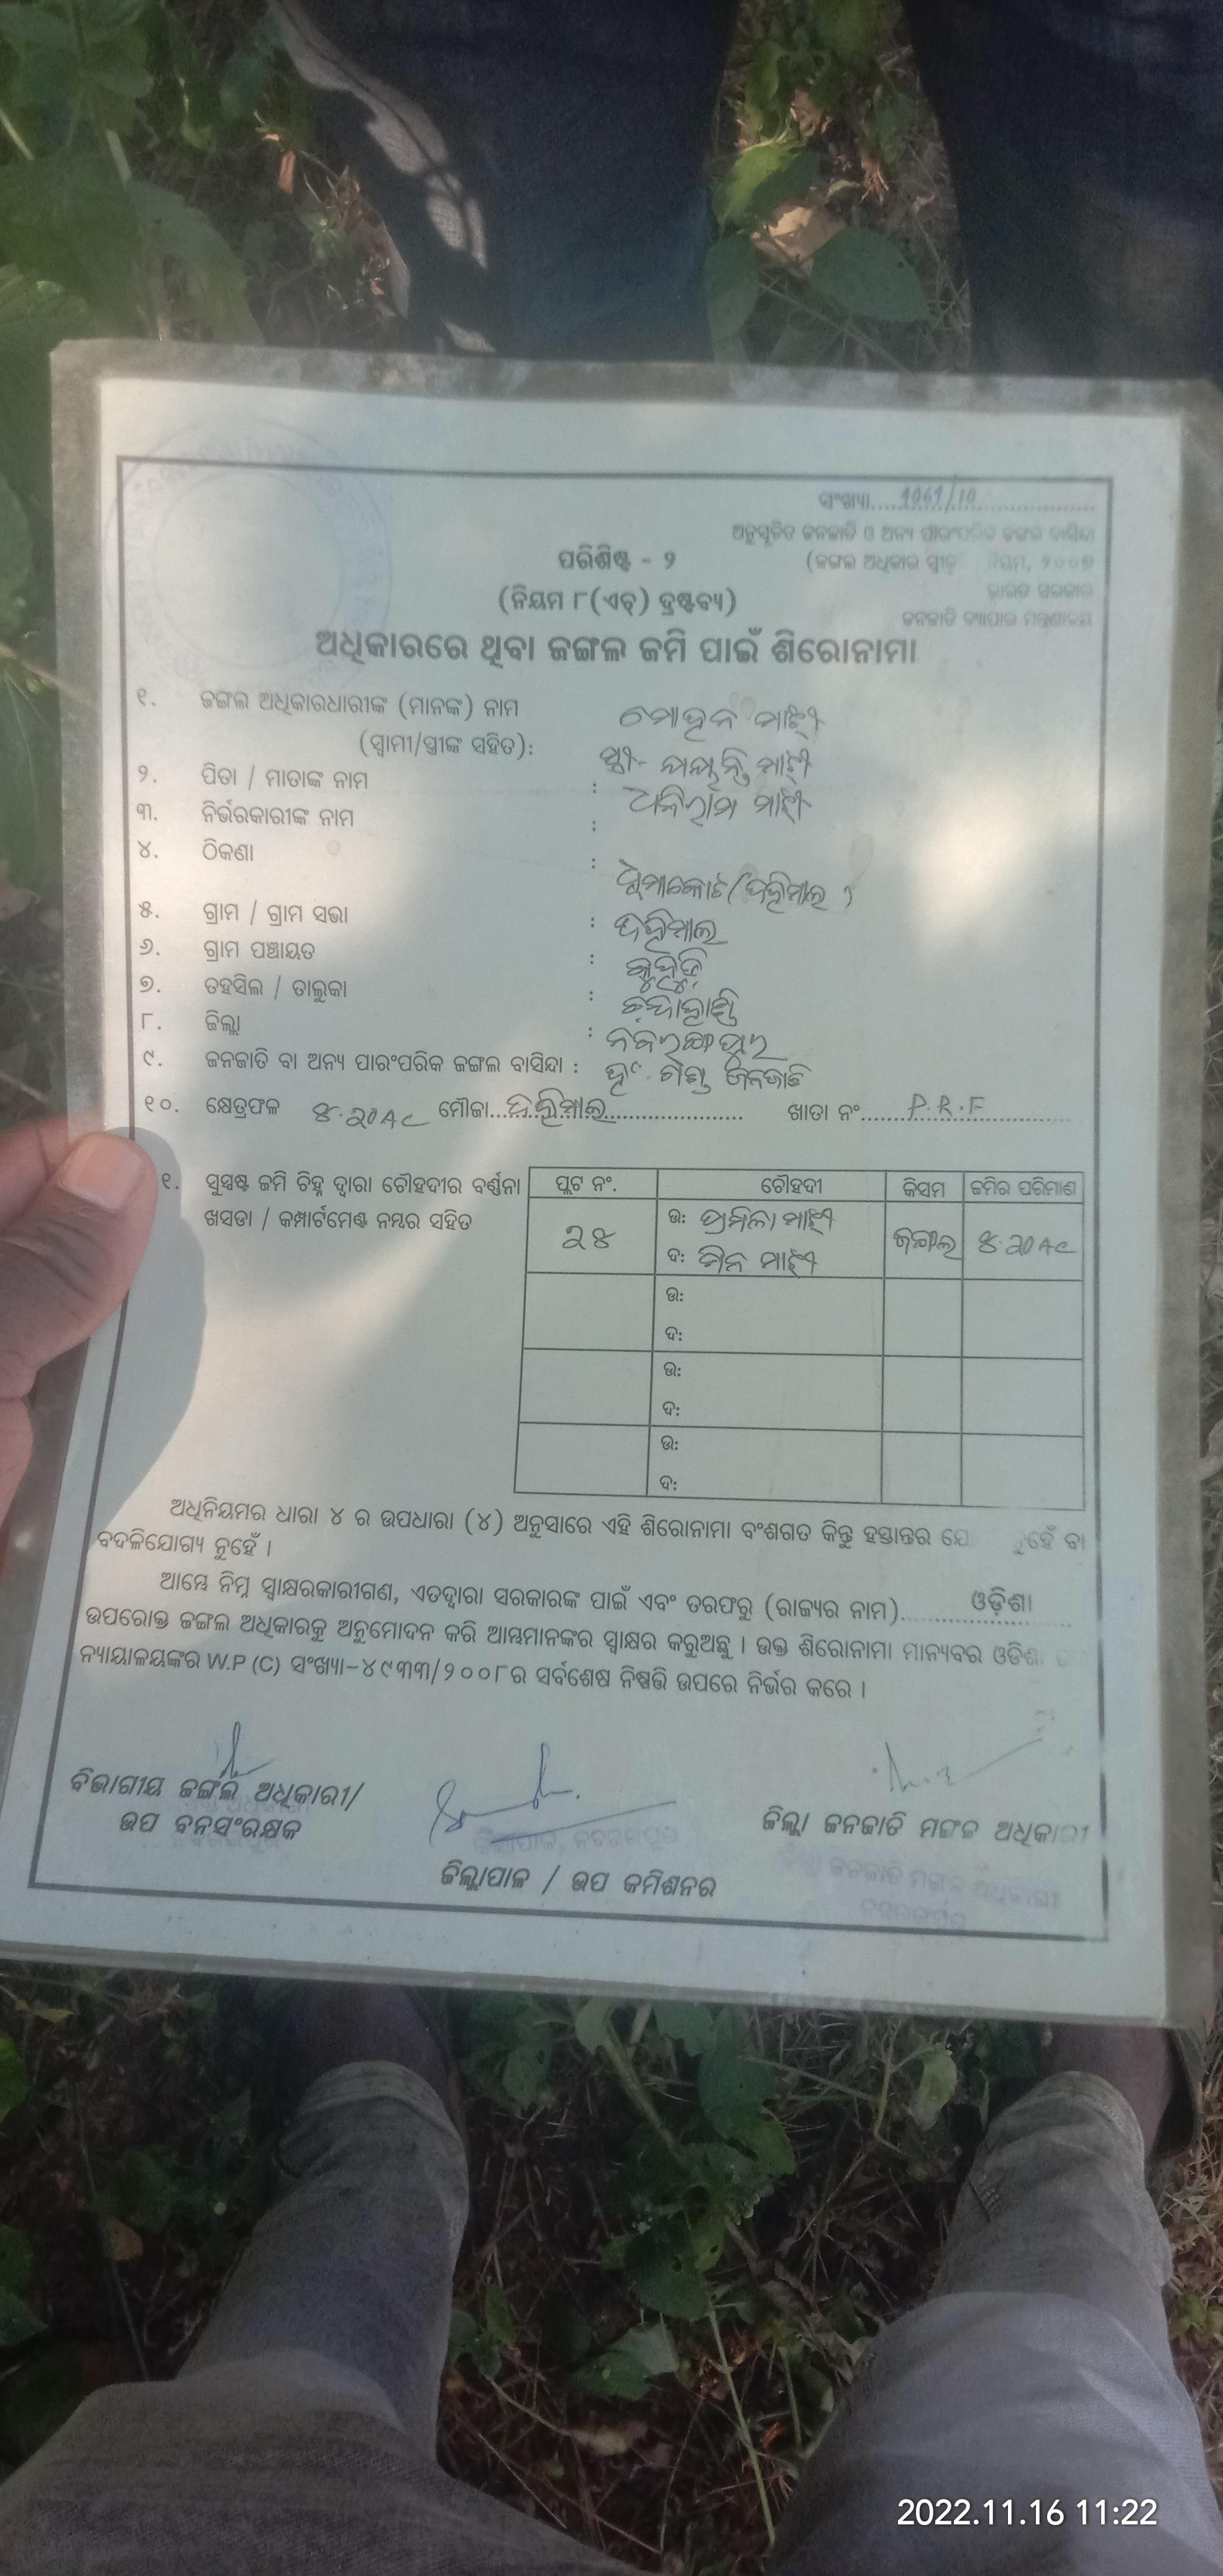 ସଂଖ୍ୟା....1061/10
ଅନୁସୂଚିତ ଜନଜାତି ଓ ଅନ୍ୟ ପାରଂପରିକ ଜଙ୍ଗଲ ବାସିନ୍ଦା
(ଜଙ୍ଗଲ ଅଧିକାର ସ୍ୱୀକୃ ନିୟମ, ୨୦୦୭
ଭାରତ ସରକାର
ଜନଜାତି ବ୍ୟାପାର ମନ୍ତ୍ରଣାଳୟ
ପରିଶିଷ୍ଟ - ୨
(ନିୟମ ୮(ଏଚ୍) ଦ୍ରଷ୍ଟବ୍ୟ)
ଅଧିକାରରେ ଥିବା ଜଙ୍ଗଲ ଜମି ପାଇଁ ଶିରୋନାମା
୧. ଜଙ୍ଗଲ ଅଧିକାରଧାରୀଙ୍କ (ମାନଙ୍କ) ନାମ ମୋହନ ମାଝୀ
(ସ୍ୱାମୀ/ସ୍ତ୍ରୀଙ୍କ ସହିତ): ସ୍ତ୍ରୀ- ଜୟନ୍ତି ମାଝୀ
୨. ପିତା / ମାତାଙ୍କ ନାମ : ଧନିରାମ ମାଝୀ
୩. ନିର୍ଭରକାରୀଙ୍କ ନାମ :
୪. ଠିକଣା :
୫. ଗ୍ରାମ / ଗ୍ରାମ ସଭା :
୬. ଗ୍ରାମ ପଞ୍ଚାୟତ :
୭. ତହସିଲ / ତାଲୁକା : ଚନ୍ଦାହାଣ୍ଡି
୮. ଜିଲ୍ଲା : ନବରଙ୍ଗପୁର
୯. ଜନଜାତି ବା ଅନ୍ୟ ପାରଂପରିକ ଜଙ୍ଗଲ ବାସିନ୍ଦା : ହଁ. ଗଣ୍ଡ ଜନଜାତି
୧୦. କ୍ଷେତ୍ରଫଳ ୫.20 AC ମୌଜା ଖାତା ନଂ P.R.F
୧. ସୁସ୍ପଷ୍ଟ ଜମି ଚିହ୍ନ ଦ୍ୱାରା ଚୌହଦୀର ବର୍ଣ୍ଣନା
ଖସଡା / କମ୍ପାର୍ଟମେଣ୍ଟ ନମ୍ବର ସହିତ
ପ୍ଲଟ ନଂ. ଚୌହଦୀ କିସମ ଜମିର ପରିମାଣ
୨୫ ଉ: ପ୍ରମିଳା ମାଝୀ ଜଙ୍ଗଲ ୫.20 AC
ଦ: ମିନ ମାଝୀ
ଉ:
ଦ:
ଉ:
ଦ:
ଉ:
ଦ:
ଅଧିନିୟମର ଧାରା ୪ ର ଉପଧାରା (୪) ଅନୁସାରେ ଏହି ଶିରୋନାମା ବଂଶଗତ କିନ୍ତୁ ହସ୍ତାନ୍ତର ଯୋ ନୁହେଁ ବା
ବଦଳିଯୋଗ୍ୟ ନୁହେଁ ।
ଆମ୍ଭେ ନିମ୍ନ ସ୍ୱାକ୍ଷରକାରୀଗଣ, ଏତଦ୍ୱାରା ସରକାରଙ୍କ ପାଇଁ ଏବଂ ତରଫରୁ (ରାଜ୍ୟର ନାମ)......ଓଡ଼ିଶା......
ଉପରୋକ୍ତ ଜଙ୍ଗଲ ଅଧିକାରକୁ ଅନୁମୋଦନ କରି ଆମ୍ଭମାନଙ୍କର ସ୍ୱାକ୍ଷର କରୁଅଛୁ । ଉକ୍ତ ଶିରୋନାମା ମାନ୍ୟବର ଓଡିଶା
ନ୍ୟାୟାଳୟଙ୍କର W.P (C) ସଂଖ୍ୟା-୪୯୩୩/୨୦୦୮ର ସର୍ବଶେଷ ନିଷ୍ପତ୍ତି ଉପରେ ନିର୍ଭର କରେ ।
ବିଭାଗୀୟ ଜଙ୍ଗଲ ଅଧିକାରୀ/
ଉପ ବନସଂରକ୍ଷକ
ଜିଲ୍ଲାପାଳ, ନବରଙ୍ଗପୁର
ଜିଲ୍ଲାପାଳ / ଉପ କମିଶନର
ଜିଲ୍ଲା ଜନଜାତି ମଙ୍ଗଳ ଅଧିକାରୀ
ଜିଲ୍ଲା ଜନଜାତି ମଙ୍ଗଳ ଅଧିକାରୀ
ନବରଙ୍ଗପୁର
2022.11.16 11:22